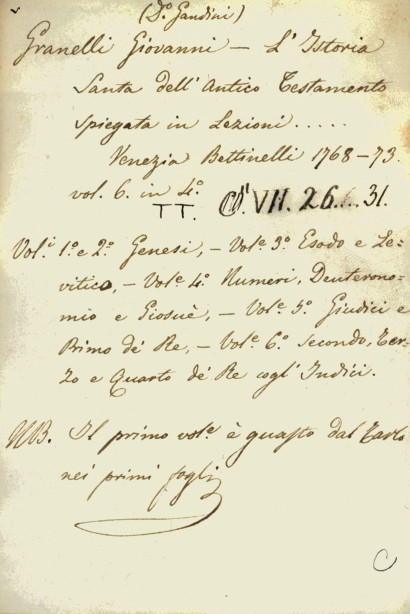 (D.º Gandini)
Granelli Giovanni — L'Istoria
Santa dell'Antico Testamento
spiegata in Lezioni .....
Venezia Bettinelli 1768–73.
vol. 6. in 4.º
TT. VII. 26...31.
Vol.i 1.º e 2.º Genesi, – Vol.e 3.º Esodo e Le=
vitico, – Vol.e 4.º Numeri, Deuterono-
mio e Giosuè, – Vol.e 5.º Giudici e
Primo dé Re, – Vol.e 6.º secondo, Ter-
zo e Quarto dé Re cogl'Indici.
NB. Il primo vol.e è guasto dal Tarlo
nei primi fogli
C